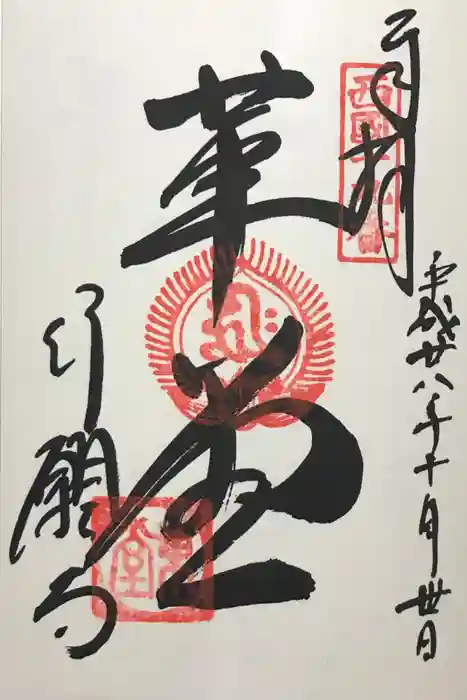 平成廿八年十月卅日
奉拝
西國十九番
革堂
行願寺
革堂